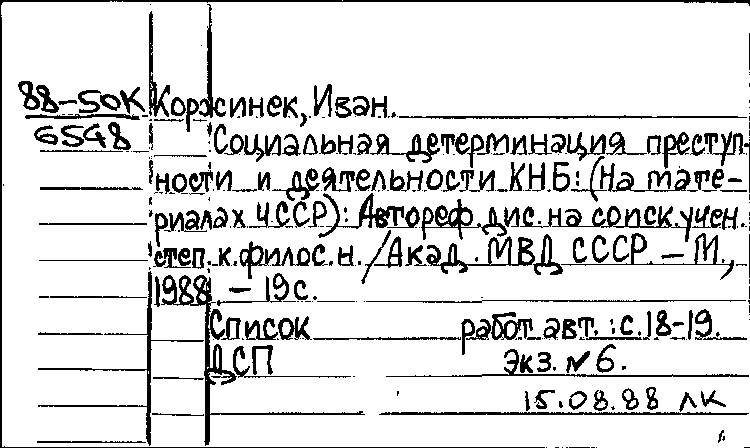 88-50К Коржинек, Иван.
6548 Социальная детерминация преступ-
ности и деятельности КНБ: (На мате-
риалах ЧССР): Автореф. дис. на соиск. учен.
степ. к. филос. н. / Акад. МВД СССР. – М.,
1988. – 19 с.
Список работ авт.: с. 18-19.
ДСП Экз. № 6.
15.08.88 ЛК